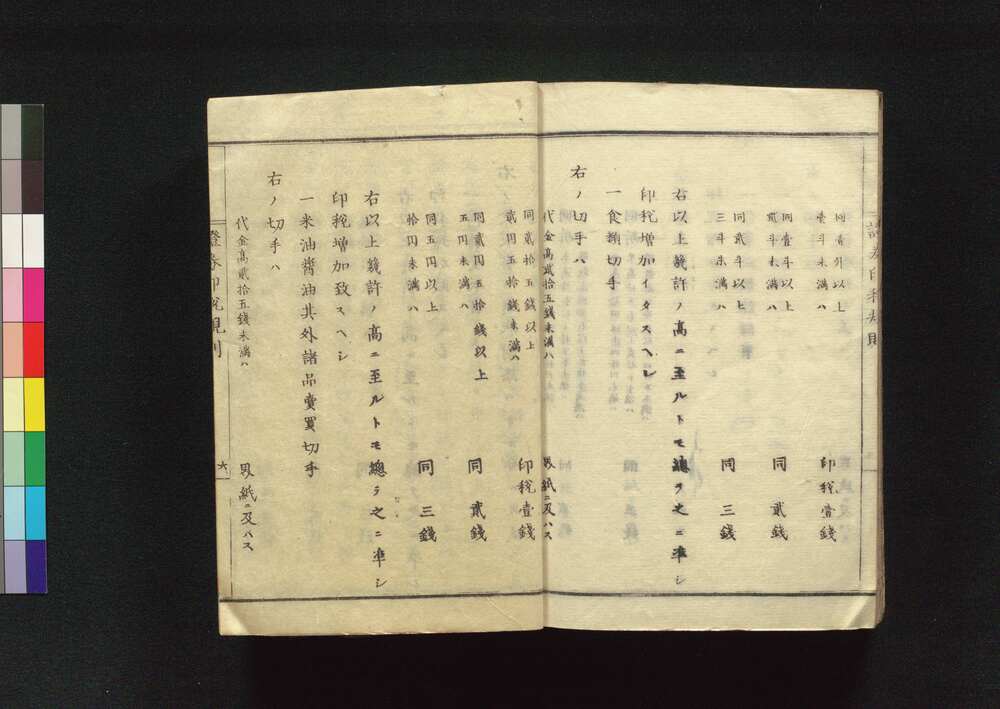 同壹升以上
壹斗未満ハ
印税壹錢
同壹斗以上
貳斗未満ハ
同 貳錢
同貳斗以上
三斗未満ハ
同 三錢
右以上幾許ノ高ニ至ルトモ總テ之ニ準シ
印税増加イタスヘシ
一食類切手
右ノ切手ハ
代金高貳拾五錢未満ハ
界紙ニ及ハス
同貳拾五錢以上
貳円五拾錢未満ハ
印税壹錢
同貳円五拾錢以上
五円未満ハ
同 貳錢
同五円以上
拾円未満ハ
同 三錢
右以上幾許ノ高ニ至ルトモ總テ之ニ準シ
印税増加致スヘシ
一米油醬油其外諸品賣買切手
右ノ切手ハ
代金高貳拾五錢未満ハ
界紙ニ及ハス
證券印税規則
六